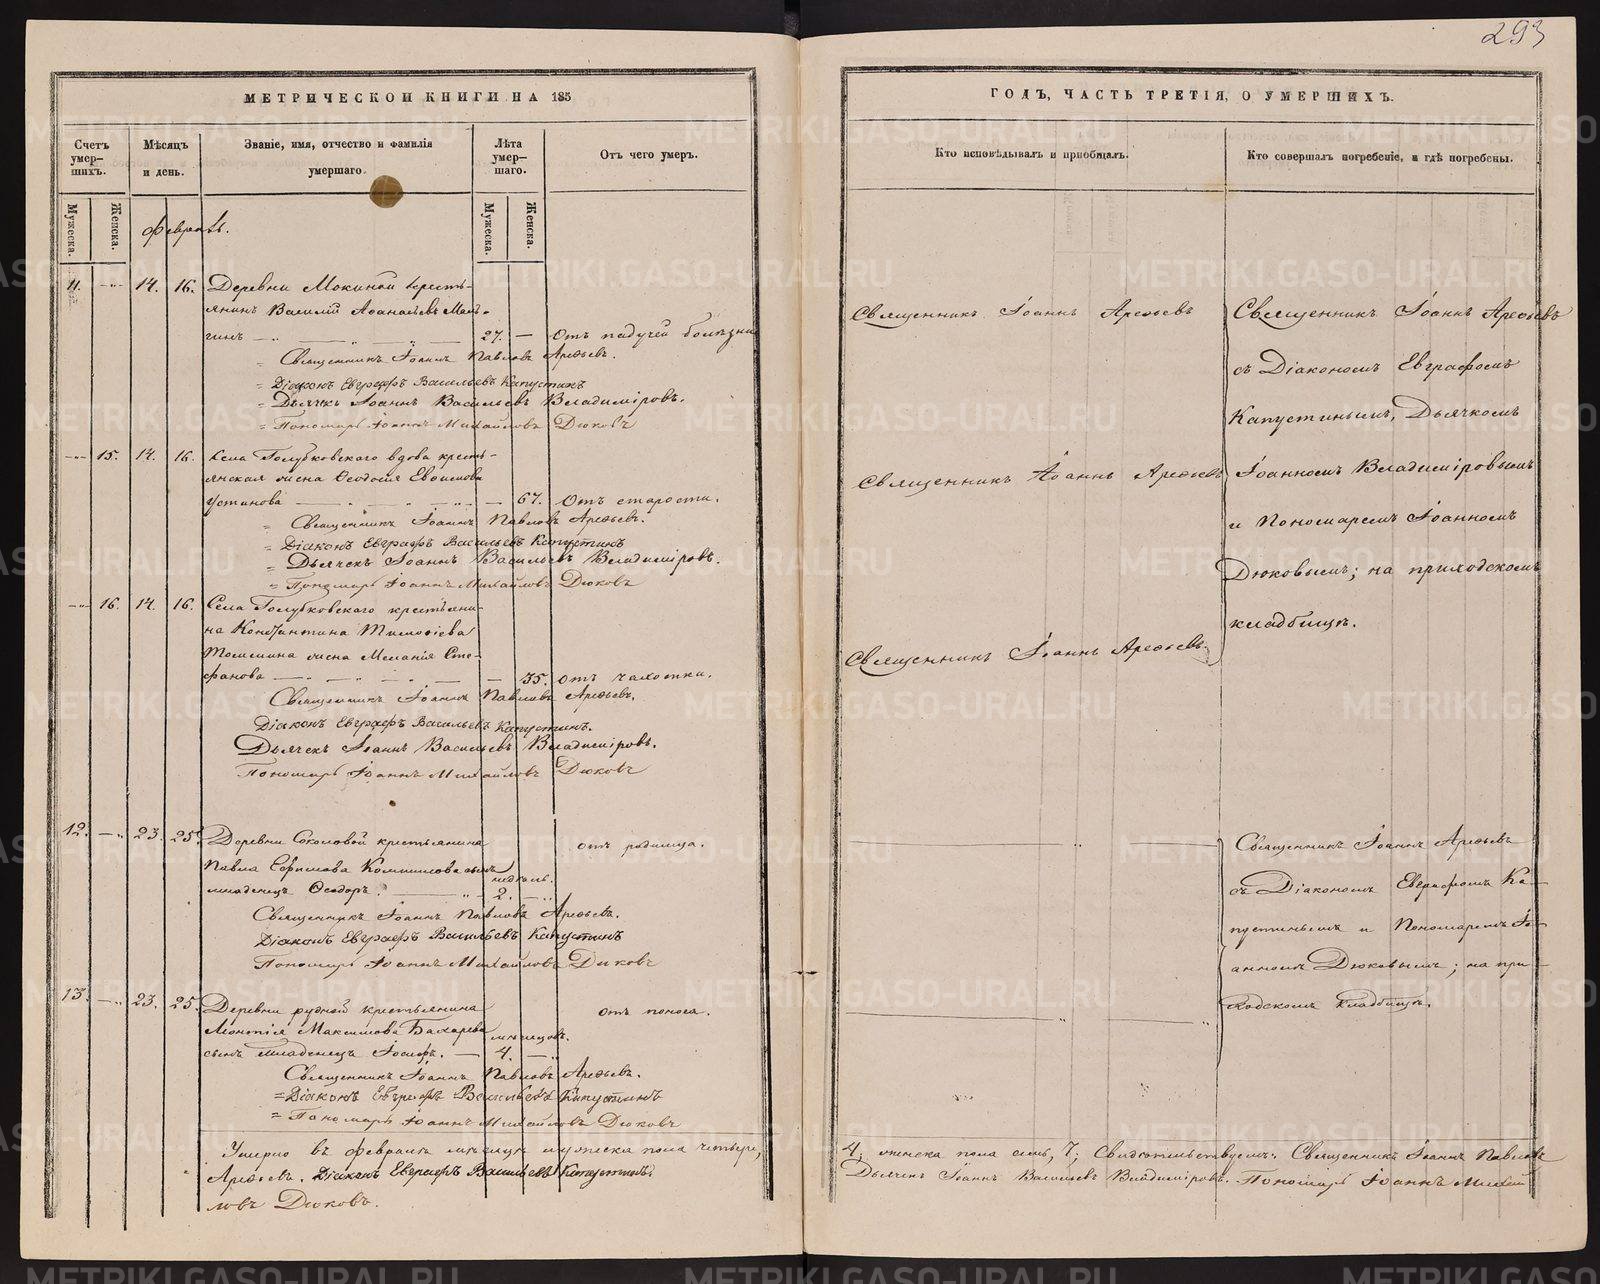 293
МЕТРИЧЕСКОЙ КНИГИ НА 185
ГОДЪ, ЧАСТЬ ТРЕТІЯ, О УМЕРШИХЪ.
Счетъ умер-шихъ.
Мужеска.
Женска.
Мѣсяцъ и день.
Званіе, имя, отчество и фамилія умершаго.
Лѣта умер-шаго.
Мужеска.
Женска.
Отъ чего умеръ.
Кто исповѣдывалъ и пріобщалъ.
Кто совершалъ погребеніе, и гдѣ погребены.
Февраль.
11. 14. 16. Деревни Мокиной кресть-
янинъ Василій Аѳанасьевъ
гинъ 27. Отъ падучей болѣзни
Священникъ Іоаннъ Павловъ Арефьевъ.
Діаконъ Евграфъ Васильевъ Капустинъ
Дьячекъ Іоаннъ Васильевъ Владиміровъ.
Пономарь Іоаннъ Михайловъ Дюковъ
Священникъ Іоаннъ Арефьевъ
Священникъ Іоаннъ Арефьевъ
съ Діакономъ Евграфомъ
Капустинымъ, Дьячкомъ
Іоанномъ Владиміровымъ
и Пономаремъ Іоанномъ
Дюковымъ; на приходскомъ
кладбищѣ.
15. 14. 16. Села Голубковскаго вдова кресть-
янская жена Ѳеодосія Евѳимова
Устинова 67. Отъ старости.
Священникъ Іоаннъ Павловъ Арефьевъ.
Діаконъ Евграфъ Васильевъ Капустинъ
Дьячекъ Іоаннъ Васильевъ Владиміровъ.
Пономарь Іоаннъ Михайловъ Дюковъ
Священникъ Іоаннъ Арефьевъ
16. 14. 16. Села Голубковскаго крестьяни-
на Константина Тимоѳіева
жена Меланія Сте-
фанова 35. отъ чахотки.
Священникъ Іоаннъ Павловъ Арефьевъ.
Діаконъ Евграфъ Васильевъ Капустинъ.
Дьячекъ Іоаннъ Васильевъ Владиміровъ.
Пономарь Іоаннъ Михайловъ Дюковъ
Священникъ Іоаннъ Арефьевъ.
12. 23. 25. Деревни Соколовой крестьянина
Павла Ефимова сынъ
младенецъ Ѳеодоръ. недѣль. 2. отъ родимца.
Священникъ Іоаннъ Павловъ Арефьевъ.
Діаконъ Евграфъ Васильевъ Капустинъ
Пономарь Іоаннъ Михайловъ Дюковъ
Священникъ Іоаннъ Арефьевъ
съ Діакономъ Евграфомъ Ка-
пустинымъ и Пономаремъ Іо-
анномъ Дюковымъ; на при-
ходскомъ кладбищѣ.
13. 23. 25. Деревни рудной крестьянина
Леонтія Максимова Бахарева
сынъ младенецъ Іосифъ. мѣсяцовъ. 4. отъ поноса.
Священникъ Іоаннъ Павловъ Арефьевъ.
Діаконъ Евграфъ Васильевъ Капустинъ
Пономарь Іоаннъ Михайловъ Дюковъ
Умерло въ февралѣ мѣсяцѣ мужеска пола четыре,
4; женска пола семь, 7; Свидѣтельствуемъ: Священникъ Іоаннъ Павловъ
Арефьевъ. Діаконъ Евграфъ Васильевъ Капустинъ.
Дьячекъ Іоаннъ Васильевъ Владиміровъ. Пономарь Іоаннъ Михай
ловъ Дюковъ.
METRIKI.GASO-URAL.RU